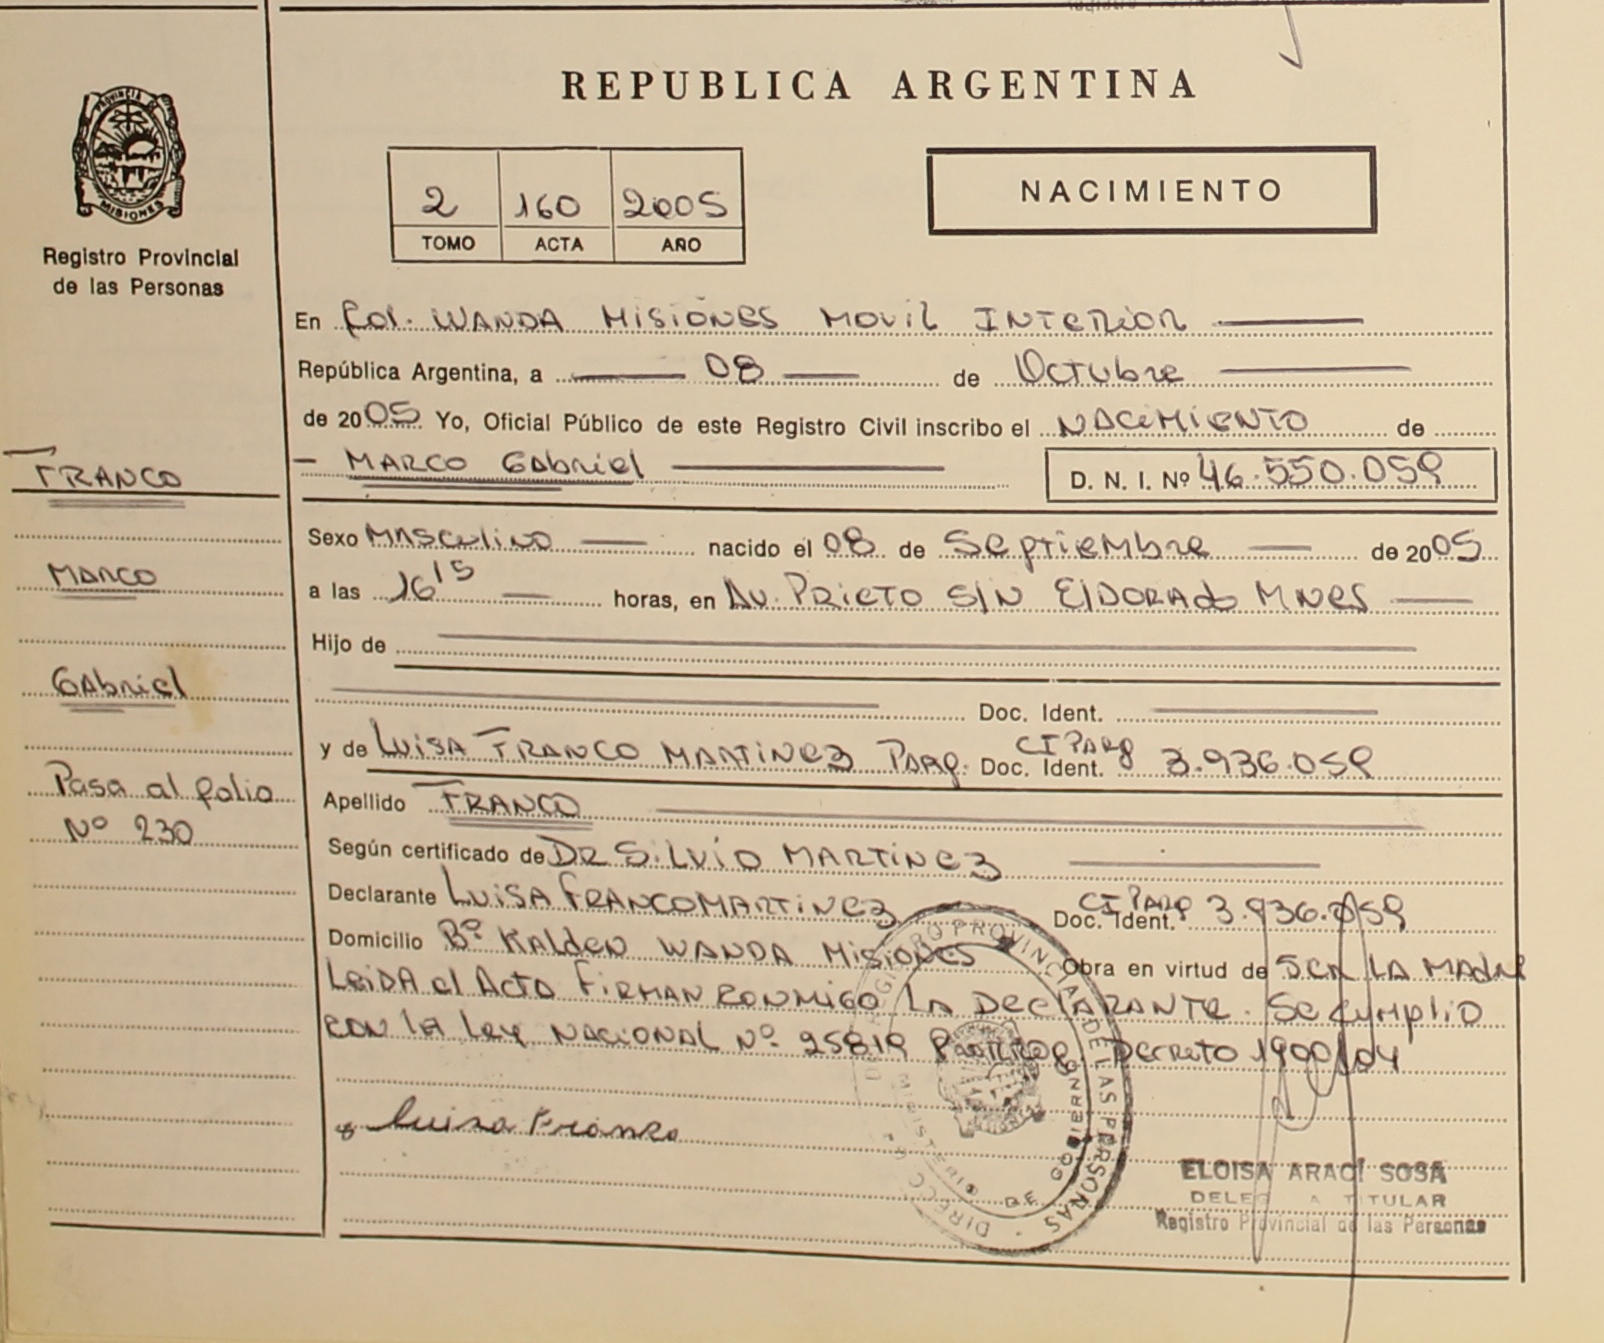 REPUBLICA ARGENTINA
PROVINCIA DE
MISIONES
Registro Provincial
de las Personas
2 160 2005
TOMO ACTA AÑO
NACIMIENTO
En Col. WANDA MISIONES MOVIL INTERIOR
República Argentina, a 08 de Octubre
de 2005 Yo, Oficial Público de este Registro Civil inscribo el NACIMIENTO de
MARCO GAbriel D. N. I. Nº 46.550.059
Sexo MASCULINO nacido el 08 de Septiembre de 2005
a las 16 15 horas, en AV. PRIETO S/N ElDORAdo MNES
Hijo de
Doc. Ident.
y de LUISA FRANCO MARTINEZ PARg. Doc. Ident. CI PARg 3.936.059
Apellido FRANCO
Según certificado de DR SILVIO MARTINEZ
Declarante LUISA FRANCO MARTINEZ Doc. Ident. CI PARg 3.936.059
Domicilio Bº KALDEN WANDA MISIONES Obra en virtud de SER LA MAdRE
LEIDA el ACTA FIRMAN CONMIGO LA DECLARANTE. SE CUMPLIO
CON LA Ley NACIONAL Nº 25819 DECRETO 1900/04
Luisa Franco
FRANCO
MARCO
GAbriel
Pasa al folio
Nº 230
REGISTRO PROVINCIAL DE LAS PERSONAS
MINISTERIO DE GOBIERNO
ELOISA ARACI SOSA
TITULAR
Registro Provincial de las Personas